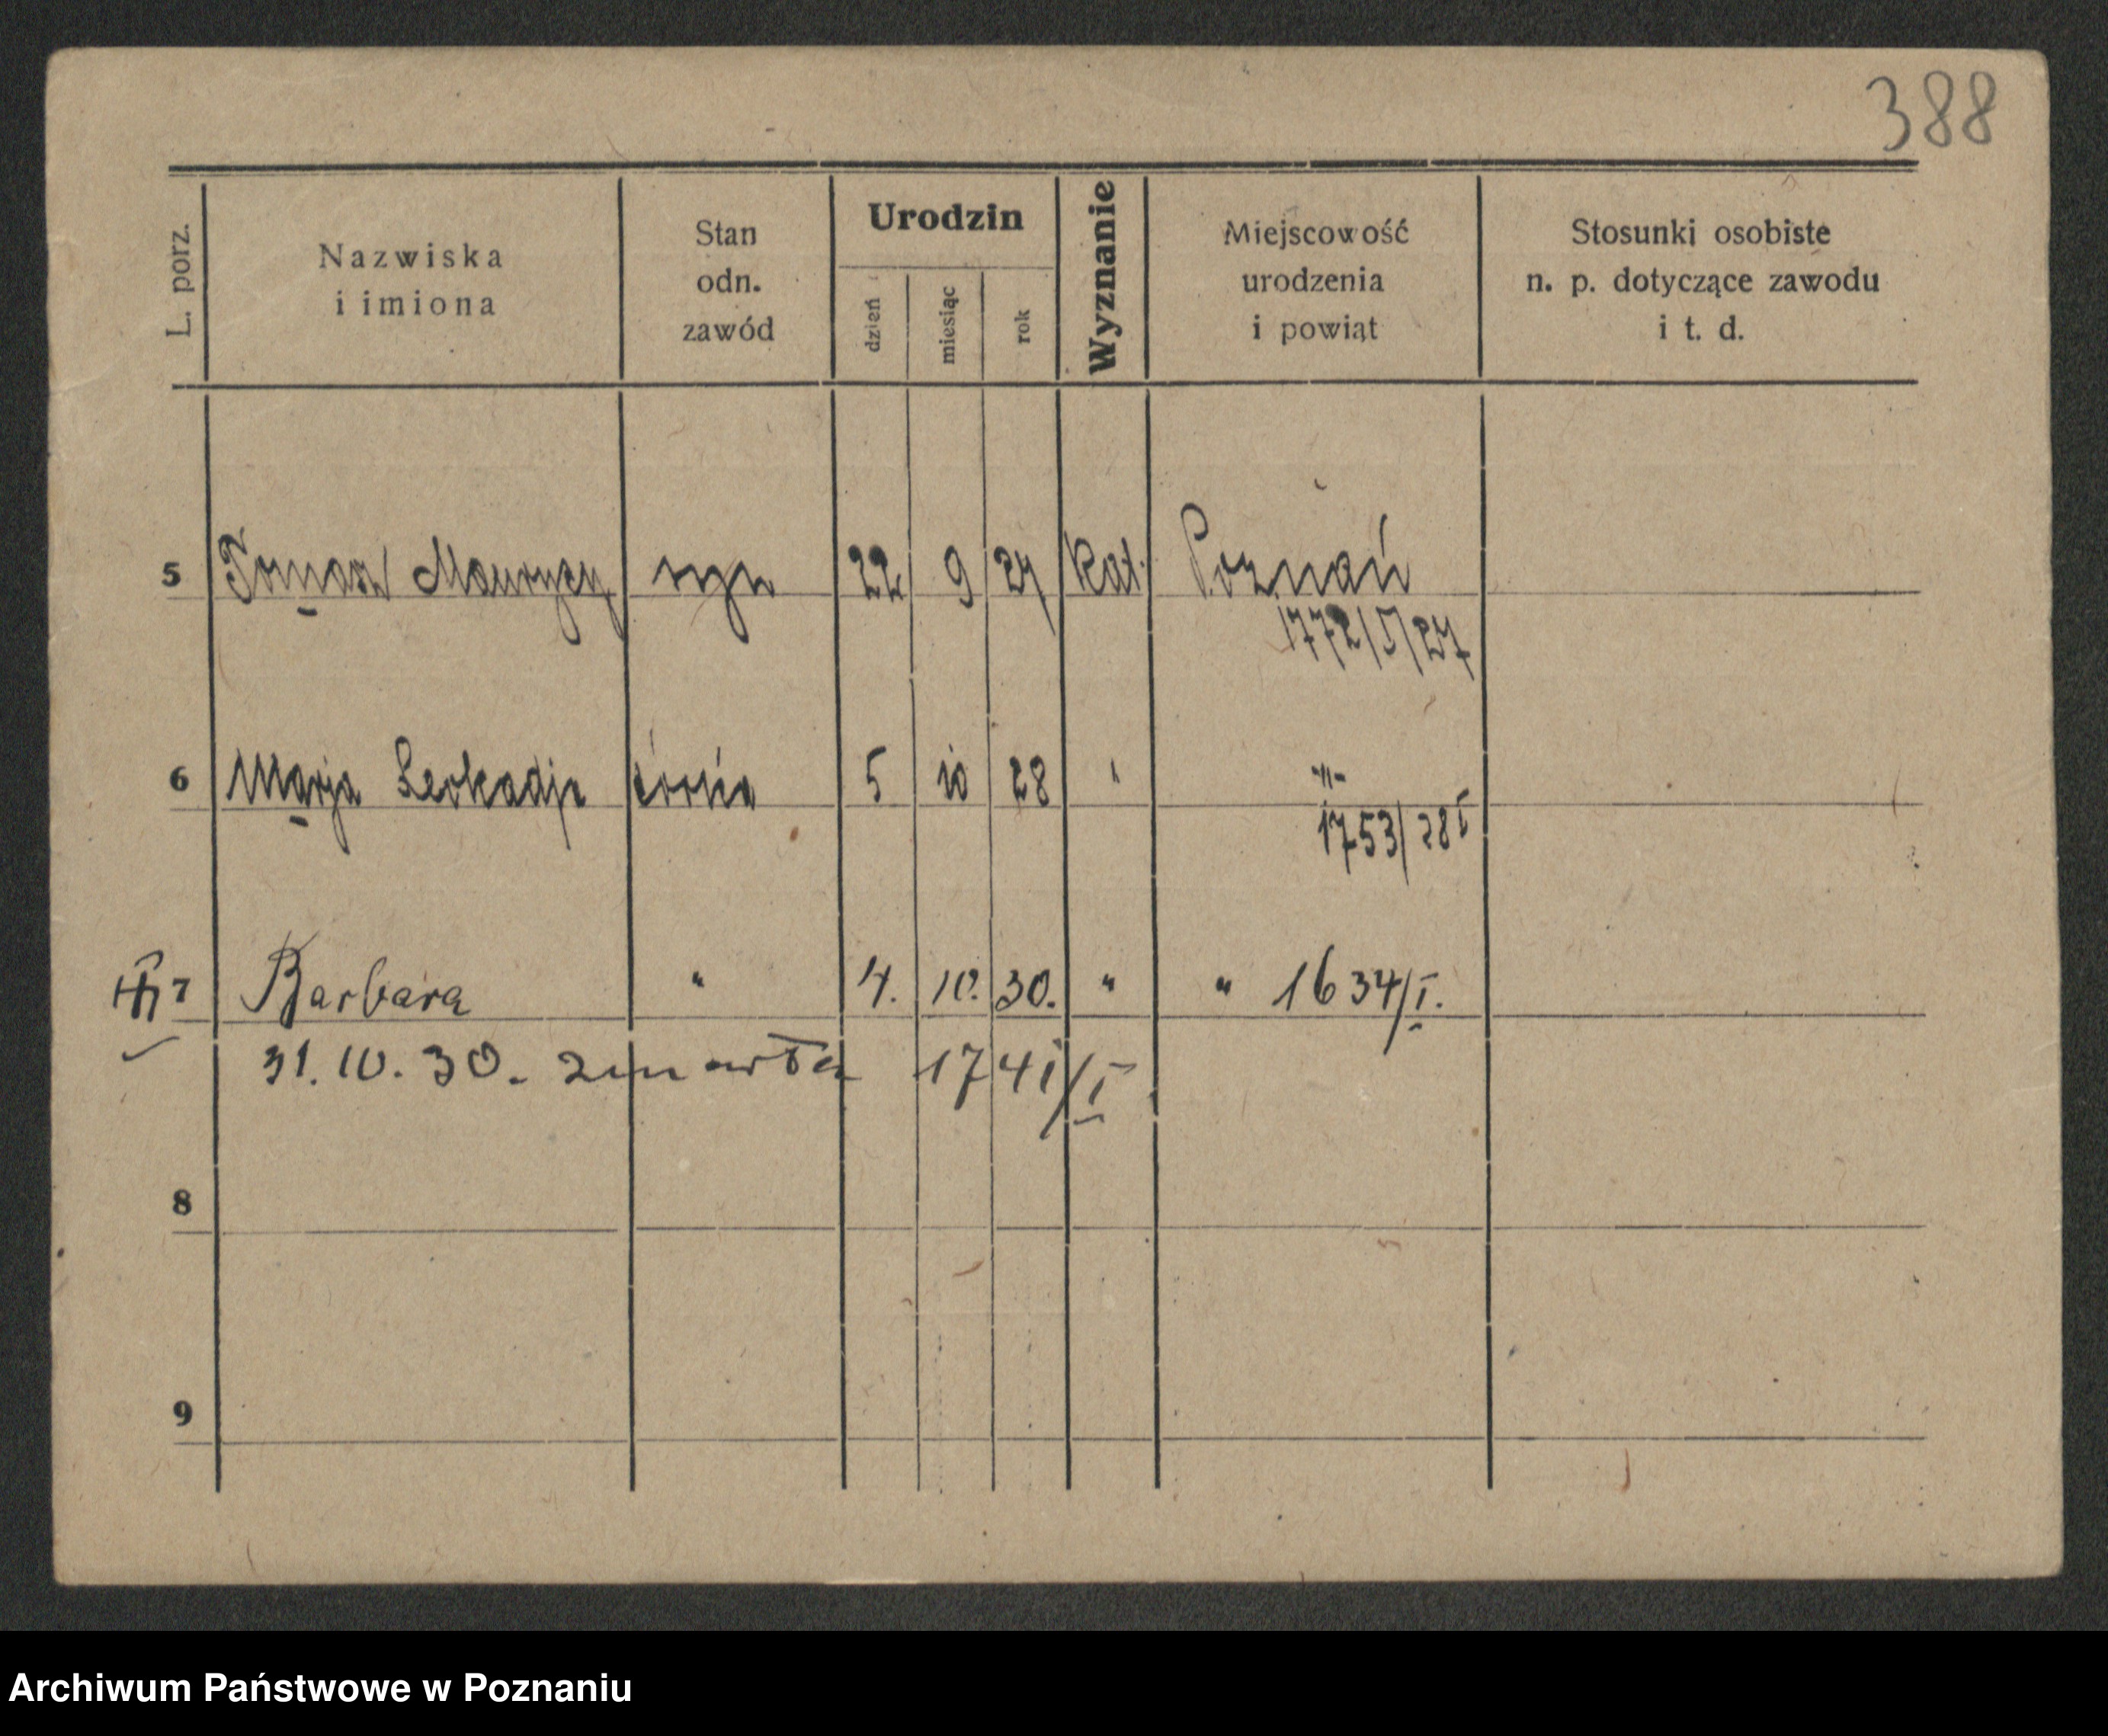 388
L. porz.
Nazwiska
i imiona
Stan
odn.
zawód
Urodzin
dzień
miesiąc
rok
Wyznanie
Miejscowość
urodzenia
i powiąt
Stosunki osobiste
n. p. dotyczące zawodu
i t. d.
5 Tomasz Maurycy syn 22 9 27 kat. Poznań
1772/I/27
6 Marja Leokadja córka 5 10 28 " -"-
1753/28 I
7 Barbara " 4. 10. 30. " " 1634/I.
31.10.30. zmarła 1741/I
8
9
Archiwum Państwowe w Poznaniu